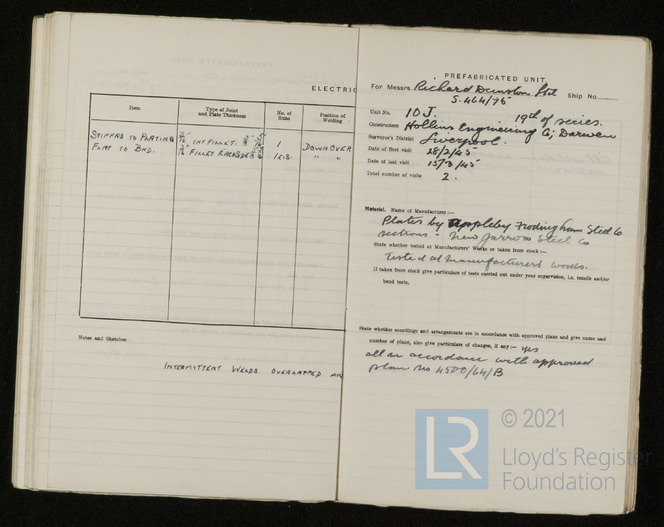 ELECTRIC
Item
Type of Joint
and Plate Thickness
No. of
Runs
Position of
Welding
STIFFRS TO PLATING
INT FILLET.
1
DOWN OVER
FLAT TO BHD.
FILLET
" "
Notes and Sketches
INTERMITTENT WELDS OVERLAPPED
PREFABRICATED UNIT
For Messrs. Richard Dunston Ltd Ship No.
S.464/75
Unit No. 10J. 19th of series.
Constructors Hollins Engineering Co; Darwen
Surveyor's District Liverpool.
Date of first visit 28/2/45
Date of last visit 15/3/45
Total number of visits 2.
Material. Name of Manufacturer:—
Plates by Appleby Frodingham Steel Co
sections - New Jarrow Steel Co
State whether tested at Manufacturers' Works or taken from stock:—
Tested at manufacturers works.
If taken from stock give particulars of tests carried out under your supervision, i.e. tensile and/or
bend tests.
State whether scantlings and arrangements are in accordance with approved plans and give name and
number of plans, also give particulars of changes, if any:— yes
all in accordance with approved
plan No 4500/64/B
© 2021
LR
Lloyd's Register
Foundation